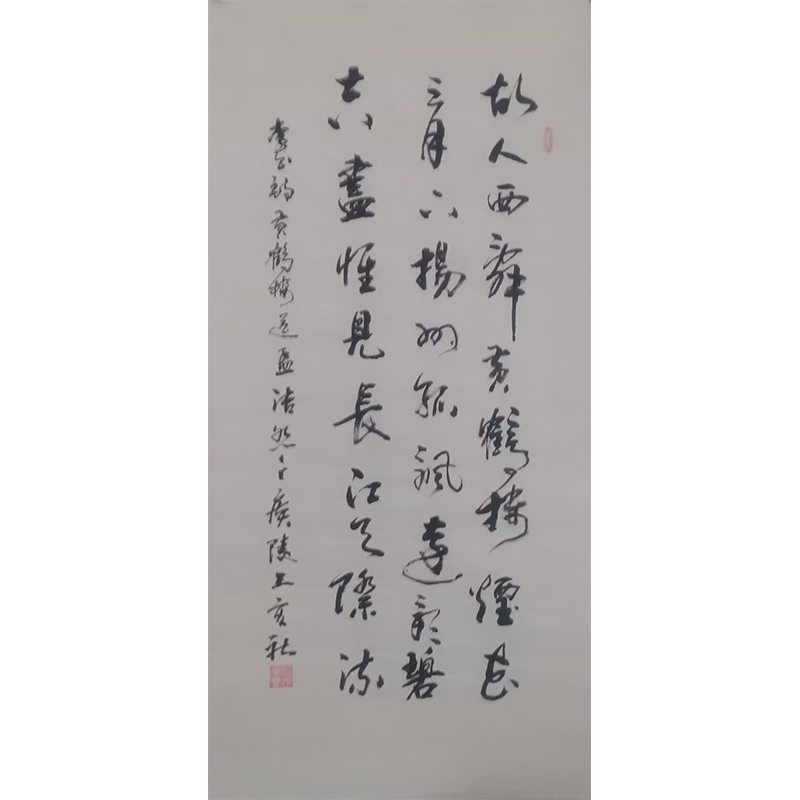 故人西辭黄鶴樓煙花
三月下揚州孤帆遠影碧
空盡惟見長江天際流
李白詩黄鶴樓送孟浩然之廣陵 亥秋